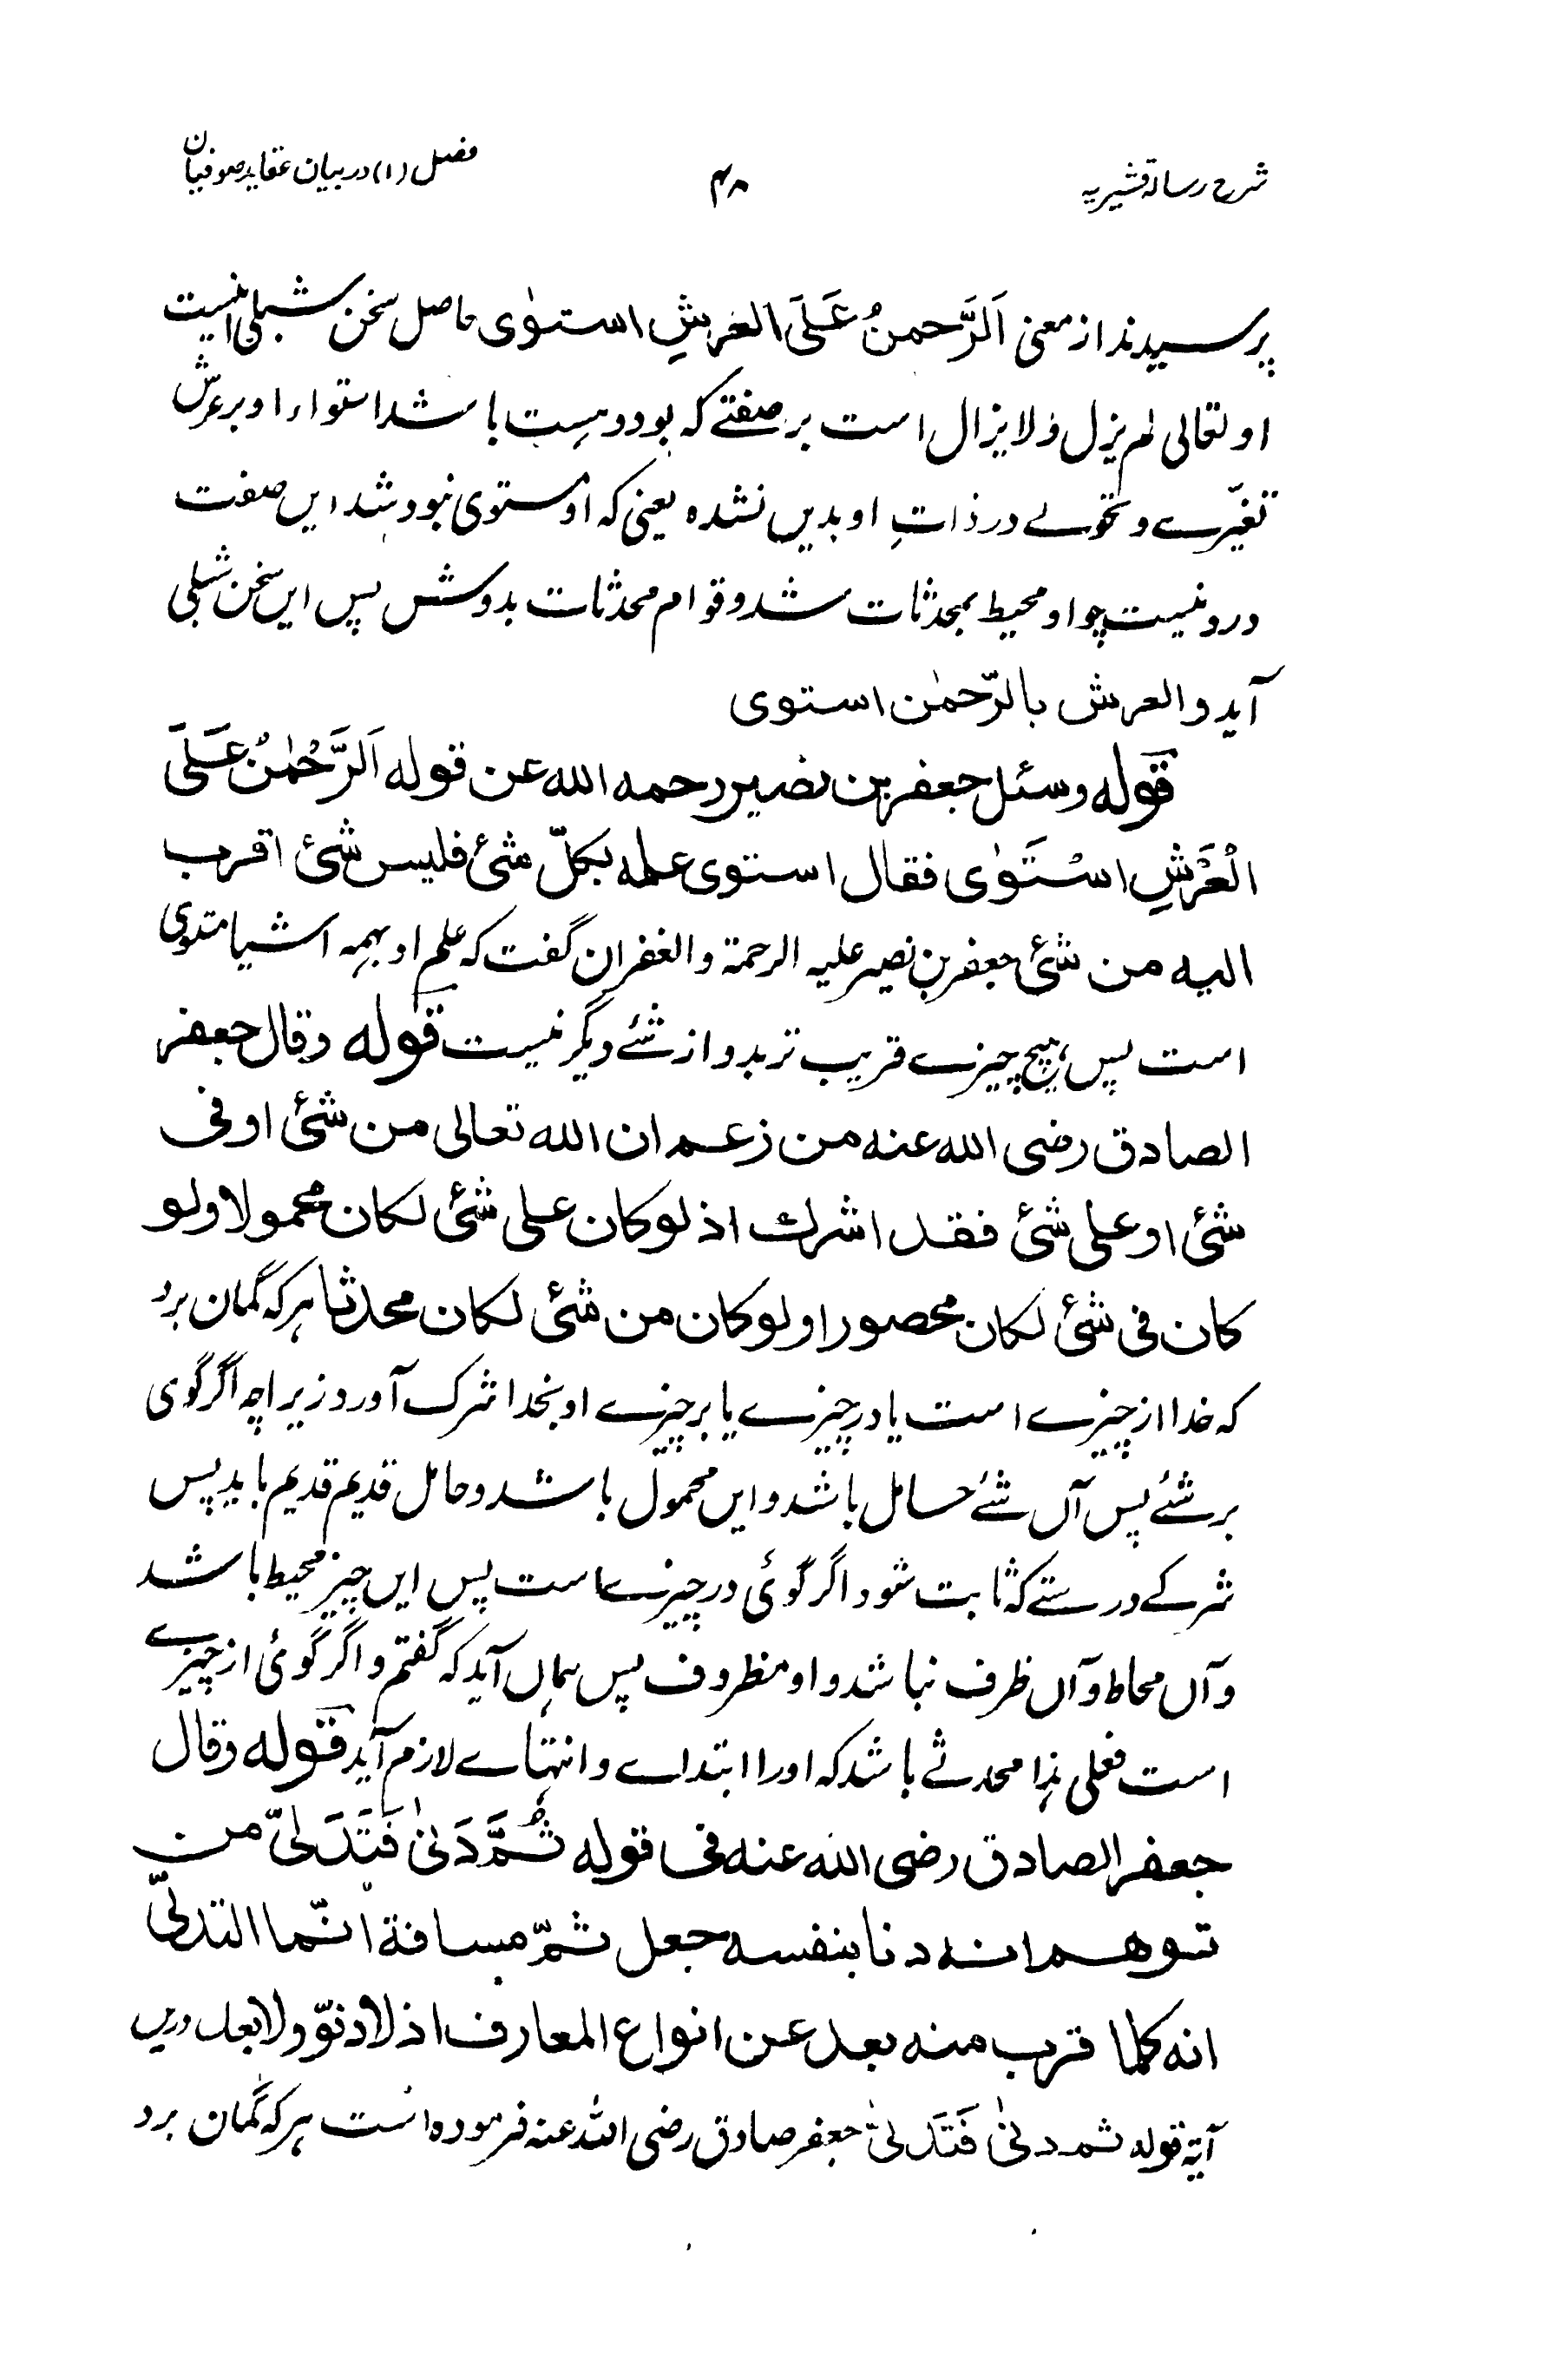 شرح رسالۀ قشیریه ۴۸ فصل (۱) در بیان عقاید صوفیان
پرسیدند از معنی اَلرَّحمنُ عَلَی العَرشِ استوٰی حاصل سخن شبلی اینست
او تعالی لم یزل و لا یزال است بر صفتے که بود و هست باشد استواء او بر عرش
تغیّرے و تحولے در ذاتِ او بدیں نشده یعنی که او مستوی نبود شد ایں صفت
درو نیست چو او محیط بمحدثات شد و قوام محدثات بدو شد پس ایں سخن شبلی
آید و العرش بالرّحمٰن استوی
قوله وسئل جعفر بن نصیر رحمه الله عن قوله اَلرَّحْمٰنُ عَلَی
الْعَرْشِ اسْتَوٰی فقال استوی علمه بکلّ شئ فلیس شئ اقرب
الیه من شئ جعفر بن نصیر علیه الرحمة و الغفران گفت که علم او بهمه اشیا مستوی
است پس هیچ چیزے قریب تر بدو از شئے دیگر نیست قوله وقال جعفر
الصادق رضی الله عنه من زعم ان الله تعالی من شئ او فی
شئ او علی شئ فقد اشرك اذ لو کان علی شئ لکان محمولا ولو
کان فی شئ لکان محصورا ولو کان من شئ لکان محدثا هر که گمان برد
که خدا از چیزے است یا در چیزے یا بر چیزے او بخدا شرک آورد زیراچه اگر گوی
بر شئے پس آں شئے حامل باشد و ایں محمول باشد و حامل قدیم قدیم باید پس
شرکے درستے که ثابت شود اگر گوئی در چیزے است پس ایں چیز محیط باشد
و آں محاط و آں ظرف نباشد و او مظروف پس هماں آید که گفتم و اگر گوئی از چیزے
است فعلی هذا محدثے باشد که او را ابتداے و انتهاے لازم آید قوله وقال
جعفر الصادق رضی الله عنه فی قوله ثُمَّ دَنیٰ فَتَدَلیّٰ من
توهم انه دنا بنفسه جعل ثمّ مسافة انّما التدلیّ
انه کلما قرب منه بعد عن انواع المعارف اذ لا دنوّ ولا بعد دریں
آیة قوله ثم دنیٰ فَتَدَلیّٰ جعفر صادق رضی الله عنه فرموده است هر که گمان برد